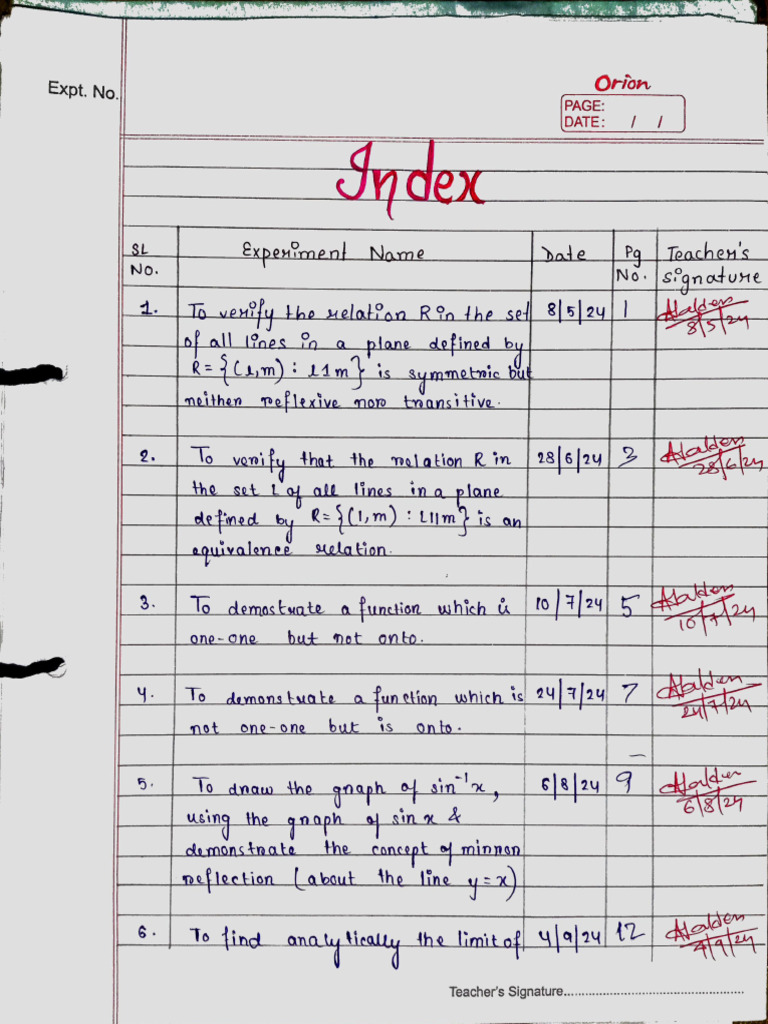 Expt. No.
Orion
PAGE:
DATE: / /
Index
SL NO. Experiment Name Date Pg No. Teacher's signature
1. To verify the relation R in the set 8/5/24 1
8/5/24
of all lines in a plane defined by
R = {(l,m) : l⊥m} is symmetric but
neither reflexive nor transitive.
2. To verify that the relation R in 28/6/24 3
28/6/24
the set L of all lines in a plane
defined by R={(l,m) : l||m} is an
equivalence relation.
3. To demostrate a function which is 10/7/24 5
10/7/24
one-one but not onto.
4. To demonstrate a function which is 24/7/24 7
24/7/24
not one-one but is onto.
5. To draw the graph of sin⁻¹x, 6/8/24 9
6/8/24
using the graph of sin x &
demonstrate the concept of mirror
reflection (about the line y=x)
6. To find analytically the limit of 4/9/24 12
4/9/24
Teacher's Signature